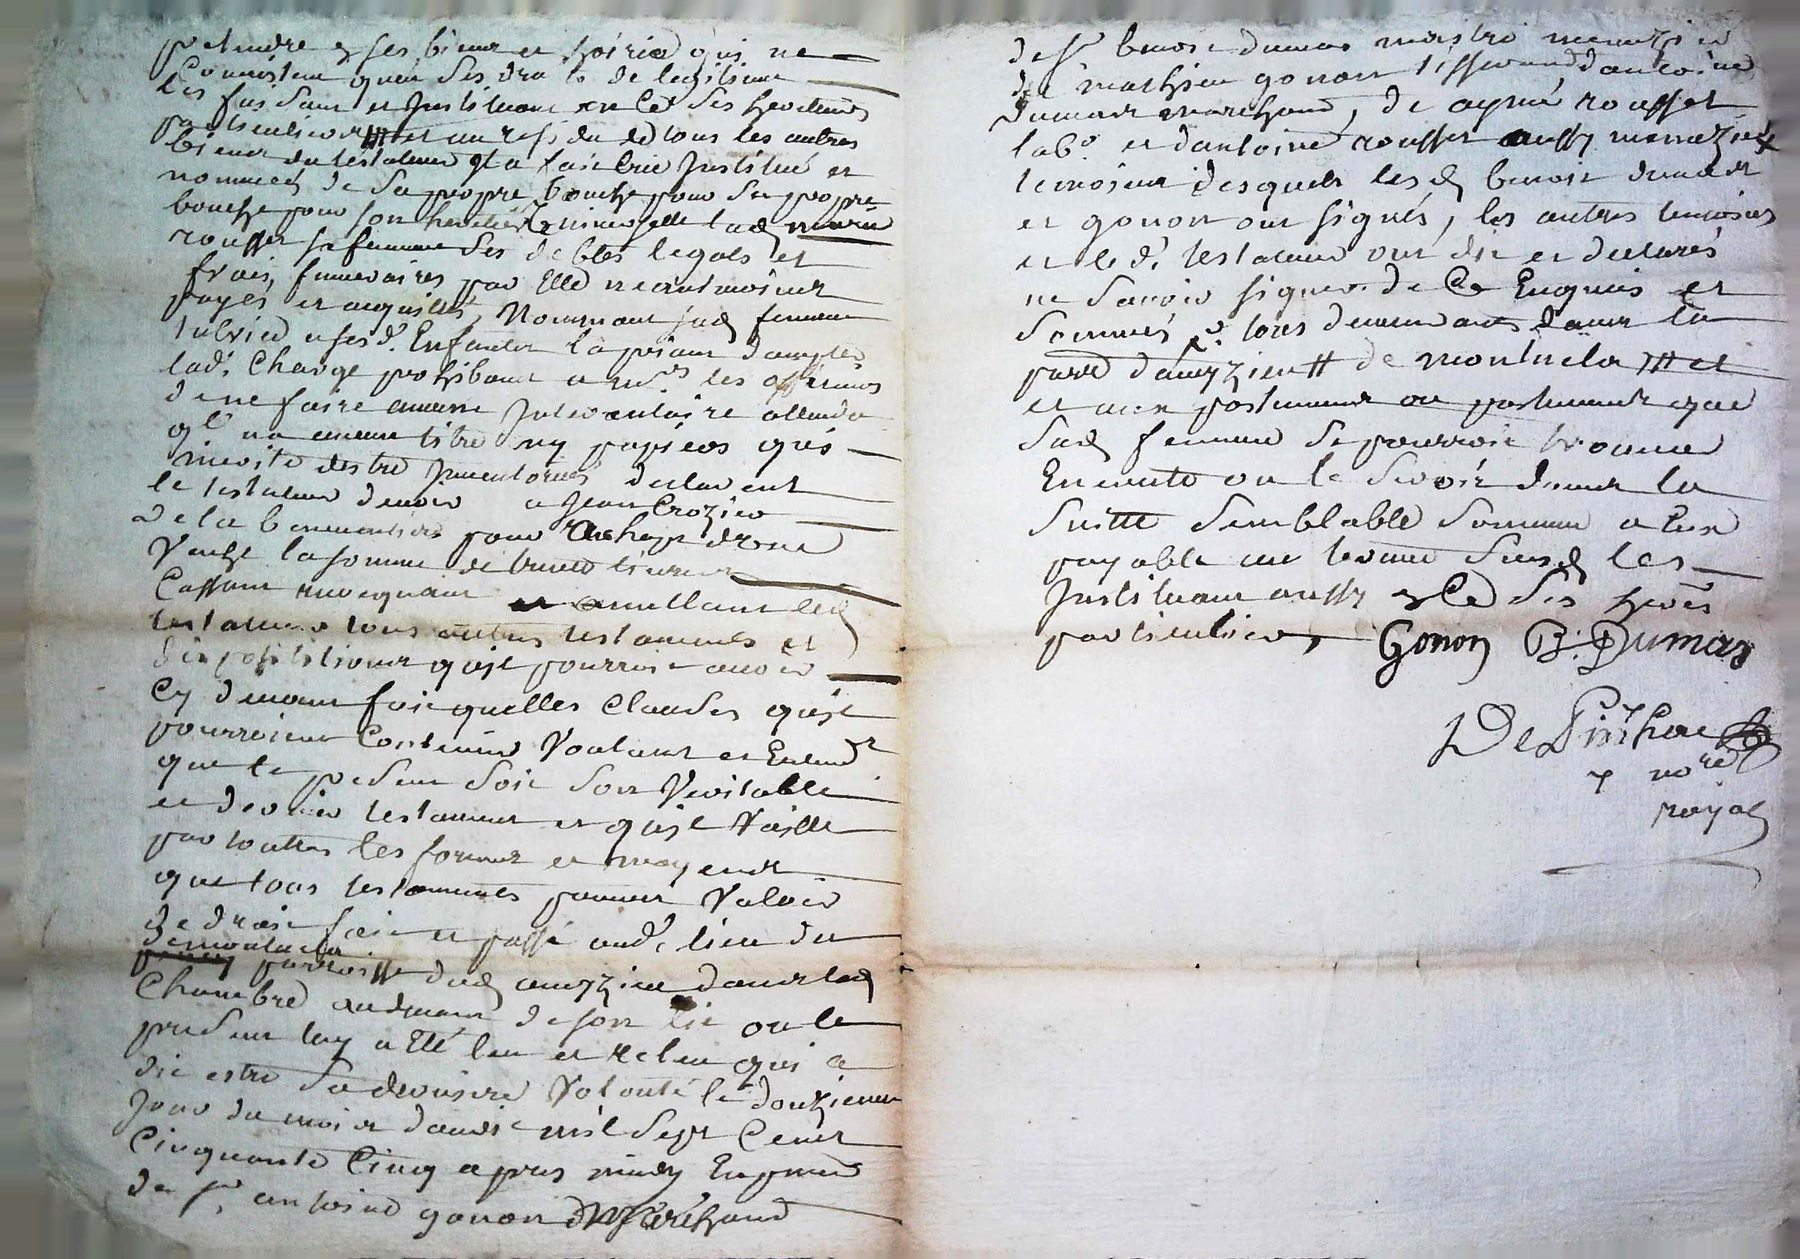 pretendre & ses biens et hoirie qui ne
Consistent qu'en ses droits de legitime
les faisant et Instituant en Ce ses heritiers
particuliers # et au residu de tous les autres
biens du testateur Il a fait Crée Institué et
nommée de sa propre bouche pour sa propre
bouche pour son heritiere universelle lad marie
rousset sa femme ses debtes legats et
frais funeraires par Elle neantmoins
payés et acquités, Nommant sad femme
tutrice a sesd. Enfants la priant daccepter
lad. Charge prohibant a mrs les officiers
de ne faire aucune Inventaire attendu
ql na aucun titre ny papiers qui
merite destre Inventoriés declarant
le testateur devoir a Jean Crozier
de la pour achapt dune
Vache la somme de trente livres
Cassant revoquant et annullant led
testateur tous autres testaments et
dispositions quil pourroit avoir
Cy devant fait quelles Clauses quil
pourroient Contenir Voulant et Entend
que le present soit son Veritable
et dernier testament et quil Vaille
par touttes les formes et moyens
que tous testaments peuvent Valoir
de droit fait et passé aud. lieu du
de montucla
parroisse dud aveyzieu dans lad
Chambre audevant de son lit ou le
present luy a Eté leu et releu qui a
dit estre sa derniere Volonté le douzieme
Jour du mois davril mil sept Cents
Cinquante Cinq apres midy En presence
de sr. antoine gonon Marchand
de sr benoit dumas maistre menuzier
de mathieu gonon tisserand dantoine
dumas marchand, de aymé rousset
labr. et dantoine rousset aussy menuzier
temoins desquels lesd benoit dumas
et gonon ont signés, les autres temoins
et led. testateur ont dit et declarés
ne savoir signer de Ce Enquis et
sommés & tous demeurants dans la
parr daveyzieu # de montucla # et
et aux postumes ou postumes que
sad femme se pourroit trouver
Enceinte ou le seroit dans la
suitte semblable somme a Eux
payable au terme susd les
Instituant aussy & Ce ses hers
particuliers, Gonon B. Dumas
De Pinhac
nore
royal